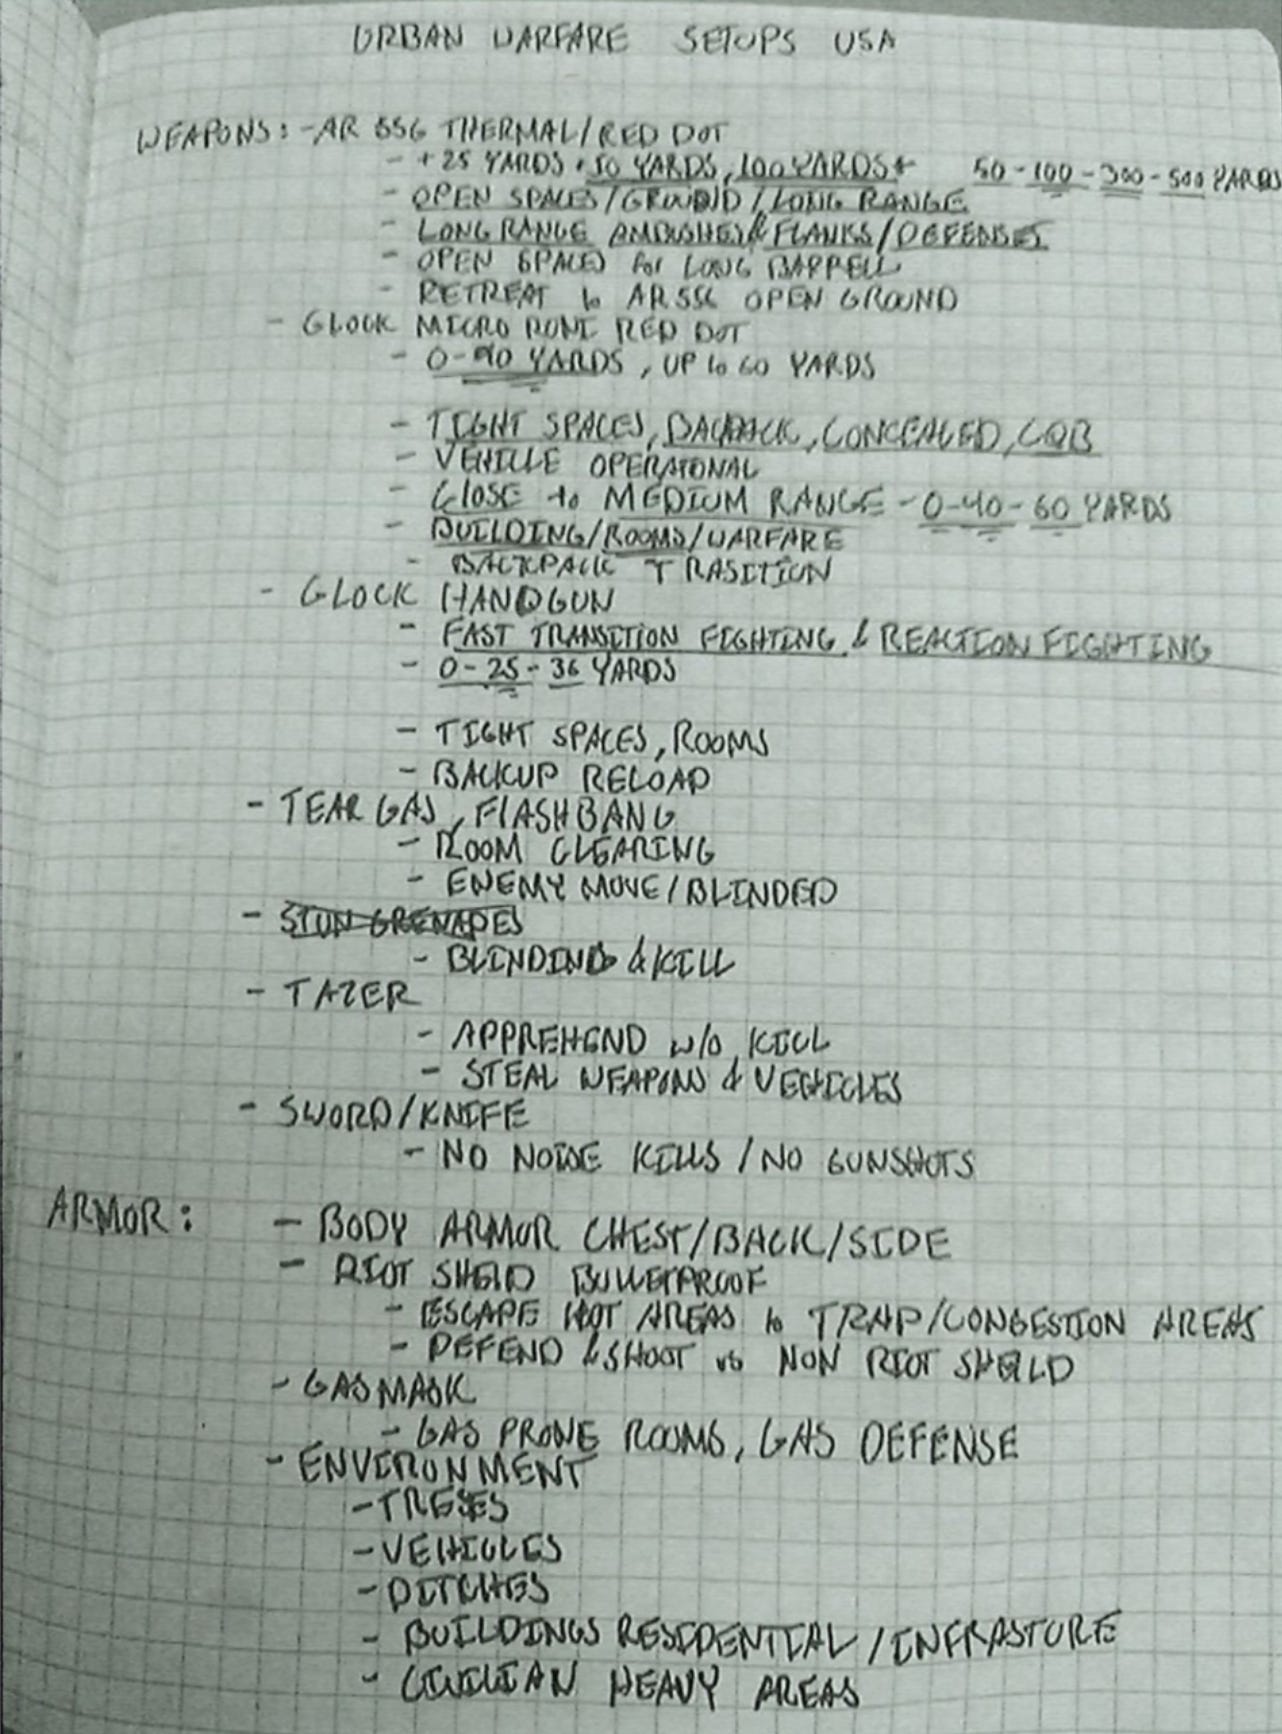 URBAN WARFARE SETUPS USA
WEAPONS: - AR 556 THERMAL/RED DOT
- + 25 YARDS, 50 YARDS, 100 YARDS+ 50-100-300-500 YARDS
- OPEN SPACES/GROUND/LONG RANGE
- LONG RANGE AMBUSHES & FLANKS/DEFENSES
- OPEN SPACES for LONG BARRELL
- RETREAT to AR 556 OPEN GROUND
- GLOCK MICRO RONI RED DOT
- 0-40 YARDS, UP to 60 YARDS
- TIGHT SPACES, BACKPACK, CONCEALED, CQB
- VEHICLE OPERATONAL
- CLOSE to MEDIUM RANGE - 0-40-60 YARDS
- BUILDING/ROOMS/WARFARE
- BACKPACK TRASITION
- GLOCK HANDGUN
- FAST TRANSITION FIGHTING & REACTION FIGHTING
- 0-25-36 YARDS
- TIGHT SPACES, ROOMS
- BACKUP RELOAD
- TEAR GAS, FLASHBANG
- ROOM CLEARING
- ENEMY MOVE/BLINDED
- STUN GRENADES
- BLINDING & KILL
- TAZER
- APPREHEND w/o KILL
- STEAL WEAPONS & VEHICLES
- SWORD/KNIFE
- NO NOISE KILLS / NO GUNSHOTS
ARMOR: - BODY ARMOR CHEST/BACK/SIDE
- RIOT SHEILD BULLETPROOF
- ESCAPE HOT AREAS to TRAP/CONGESTION AREAS
- DEFEND & SHOOT vs NON RIOT SHEILD
- GASMASK
- GAS PRONE ROOMS, GAS DEFENSE
- ENVIRONMENT
- TREES
- VEHICLES
- DITCHES
- BUILDINGS RESIDENTIAL/INFRASTURE
- CIVILIAN HEAVY AREAS